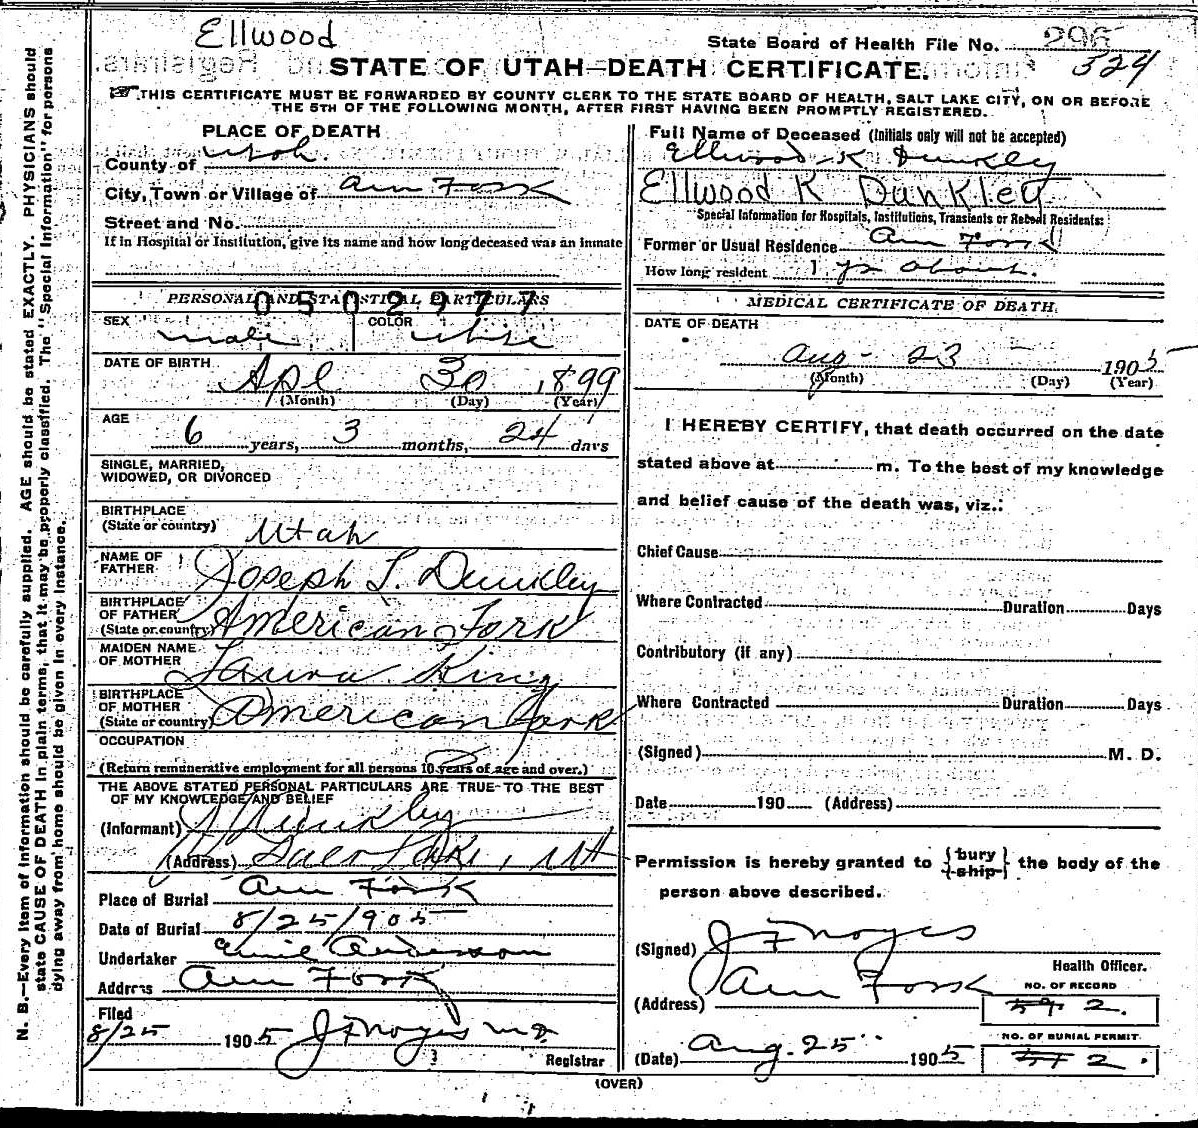 Ellwood
State Board of Health File No. 296
324
STATE OF UTAH—DEATH CERTIFICATE.
THIS CERTIFICATE MUST BE FORWARDED BY COUNTY CLERK TO THE STATE BOARD OF HEALTH, SALT LAKE CITY, ON OR BEFORE
THE 5TH OF THE FOLLOWING MONTH, AFTER FIRST HAVING BEEN PROMPTLY REGISTERED.
N. B.—Every item of information should be carefully supplied. AGE should be stated EXACTLY. PHYSICIANS should
state CAUSE OF DEATH in plain terms, that it may be properly classified. The "Special Information" for persons
dying away from home should be given in every instance.
PLACE OF DEATH
County of Utah.
City, Town or Village of Am Fork
Street and No.
If in Hospital or Institution, give its name and how long deceased was an inmate
PERSONAL AND STATISTICAL PARTICULARS
0502977
SEX male COLOR white
DATE OF BIRTH
Apl 30 1899
(Month) (Day) (Year)
AGE
6 years, 3 months, 24 days
SINGLE, MARRIED,
WIDOWED, OR DIVORCED
BIRTHPLACE
(State or country) Utah
NAME OF
FATHER Joseph L. Dunkley
BIRTHPLACE
OF FATHER
(State or country) American Fork
MAIDEN NAME
OF MOTHER Laura King
BIRTHPLACE
OF MOTHER
(State or country) American Fork
OCCUPATION
(Return remunerative employment for all persons 10 years of age and over.)
THE ABOVE STATED PERSONAL PARTICULARS ARE TRUE TO THE BEST
OF MY KNOWLEDGE AND BELIEF
(Informant) Dunkley
(Address) Lake, Ut
Place of Burial Am Fork
Date of Burial 8/25/905
Undertaker Emil Anderson
Address Am Fork
Filed
8/25 1905 J F Noyes M D.
Registrar
Full Name of Deceased (Initials only will not be accepted)
Ellwood K Dunkley
Ellwood K Dunkley
Special Information for Hospitals, Institutions, Transients or Recent Residents:
Former or Usual Residence Am Fork
How long resident 1 yr about.
MEDICAL CERTIFICATE OF DEATH.
DATE OF DEATH
Aug - 23 1905
(Month) (Day) (Year)
I HEREBY CERTIFY, that death occurred on the date
stated above at m. To the best of my knowledge
and belief cause of the death was, viz.:
Chief Cause
Where Contracted Duration Days
Contributory (if any)
Where Contracted Duration Days
(Signed) M. D.
Date 190 (Address)
Permission is hereby granted to {bury ship} the body of the
person above described.
(Signed) J F Noyes
Health Officer.
(Address) Am Fork
NO. OF RECORD
59 2.
(Date) Aug. 25 1905
NO. OF BURIAL PERMIT
57 2.
(OVER)